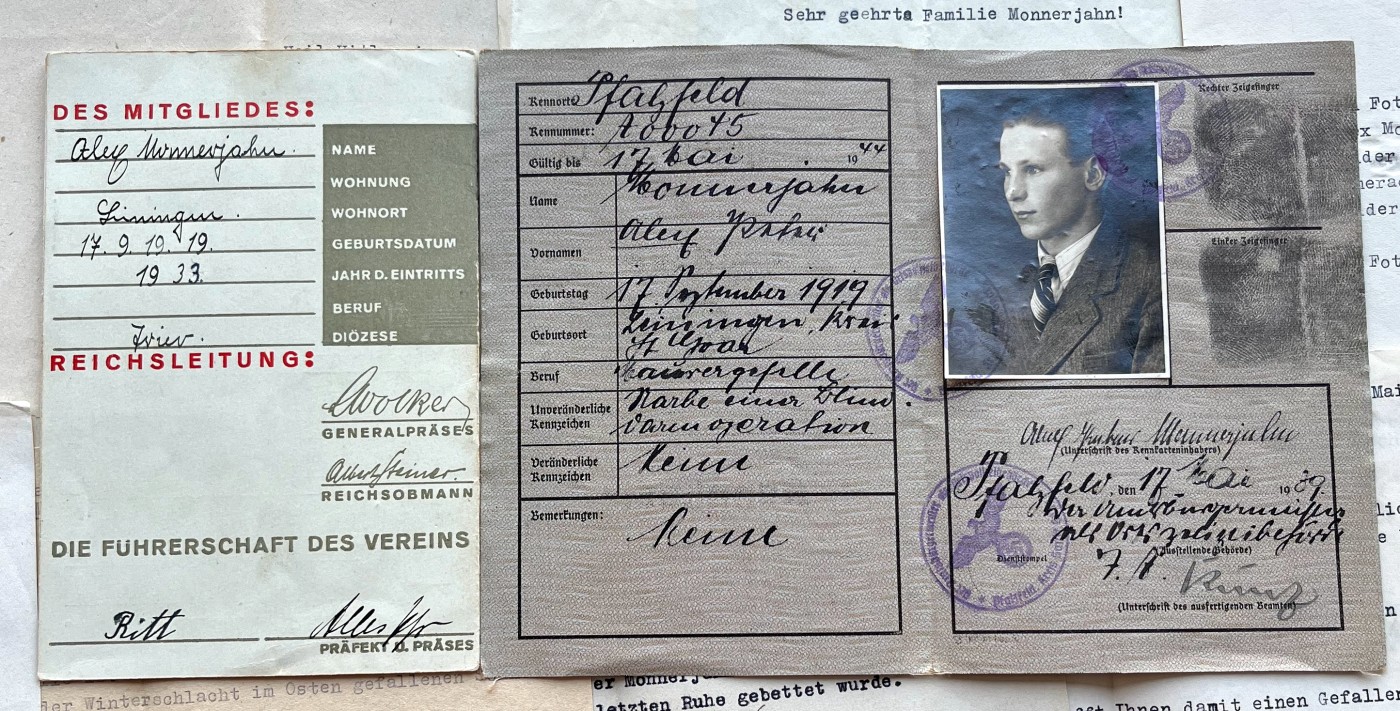 Sehr geehrta Familie Monnerjahn!
DES MITGLIEDES:
Alex Monnerjahn.
NAME
WOHNUNG
Leiningen.
WOHNORT
17. 9. 19. 19.
GEBURTSDATUM
19 33.
JAHR D. EINTRITTS
BERUF
Trier.
DIÖZESE
REICHSLEITUNG:
L Wolker
GENERALPRÄSES
Albert Steiner.
REICHSOBMANN
DIE FÜHRERSCHAFT DES VEREINS
Ritt
PRÄFEKT U. PRÄSES
Kennort: Pfalzfeld
Kennummer: A00045
Gültig bis 17. Mai 1944
Name Monnerjahn
Vornamen Alex Peter
Geburtstag 17 September 1919
Geburtsort Leiningen, Kreis
St Goar
Beruf Maurergeselle
Unveränderliche Kennzeichen Narbe einer Blind-
darmoperation
Veränderliche Kennzeichen Keine
Bemerkungen:
Keine
Rechter Zeigefinger
Linker Zeigefinger
Alex Monnerjahn
(Unterschrift des Kennkarteninhabers)
Pfalzfeld, den 17 Mai 1939.
Der Amtsbürgermeister
als Ortspolizeibehörde
(Ausstellende Behörde)
Dienststempel
Kunz
(Unterschrift des ausfertigenden Beamten)
der Winterschlacht im Osten gefallenen
er Monnerja
letzten Ruhe gebettet wurde.
Ihnen damit einen Gefallen